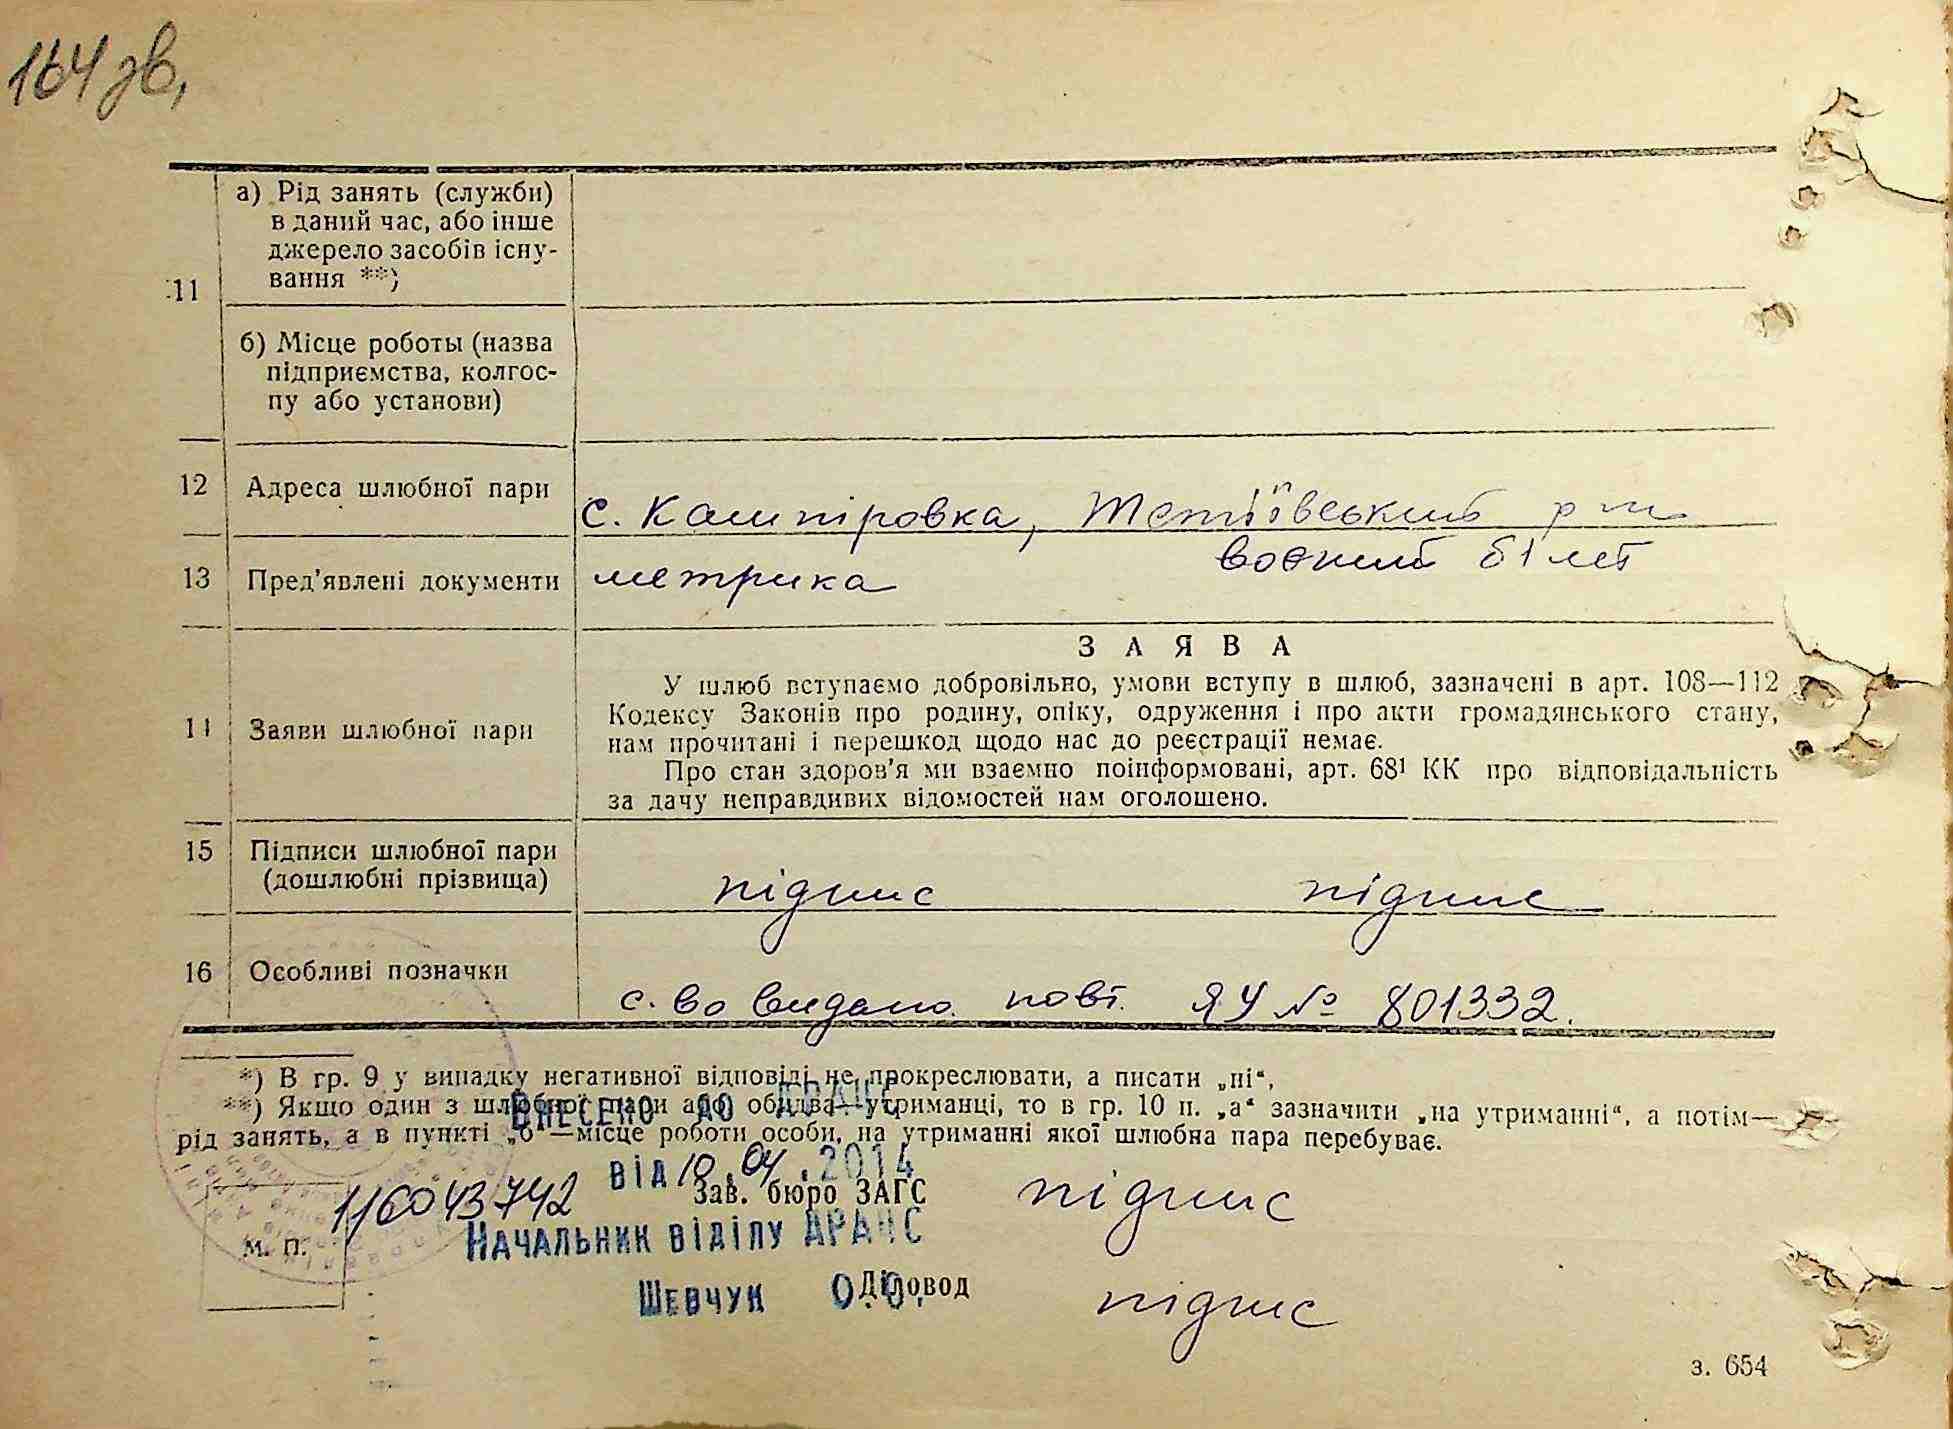 164 зв,
а) Рід занять (служби)
в даний час, або інше
джерело засобів існу-
вання **)
11
б) Місце роботы (назва
підприємства, колгос-
пу або установи)
12 Адреса шлюбної пари с. Кашпіровка, Тетіївський р-н
воєнний білет
13 Пред’явлені документи метрика
З А Я В А
У шлюб вступаємо добровільно, умови вступу в шлюб, зазначені в арт. 108—112
Кодексу Законів про родину, опіку, одруження і про акти громадянського стану,
14 Заяви шлюбної пари нам прочитані і перешкод щодо нас до реєстрації немає.
Про стан здоров’я ми взаємно поінформовані, арт. 68¹ КК про відповідальність
за дачу неправдивих відомостей нам оголошено.
15 Підписи шлюбної пари
(дошлюбні прізвища) підпис підпис
16 Особливі позначки
с-во видано повт. ЯУ № 801332.
*) В гр. 9 у випадку негативної відповіді не прокреслювати, а писати „ні“,
**) Якщо один з шлюбної пари або обидва утриманці, то в гр. 10 п. „а“ зазначити „на утриманні“, а потім—
рід занять, а в пункті „б“—місце роботи особи, на утриманні якої шлюбна пара перебуває.
Внесено до ДРАЦС
від 10.04.2014
116043742
Зав. бюро ЗАГС підпис
М. П.
Начальник відділу ДРАЦС
Шевчук О.О.
Діловод підпис
з. 654